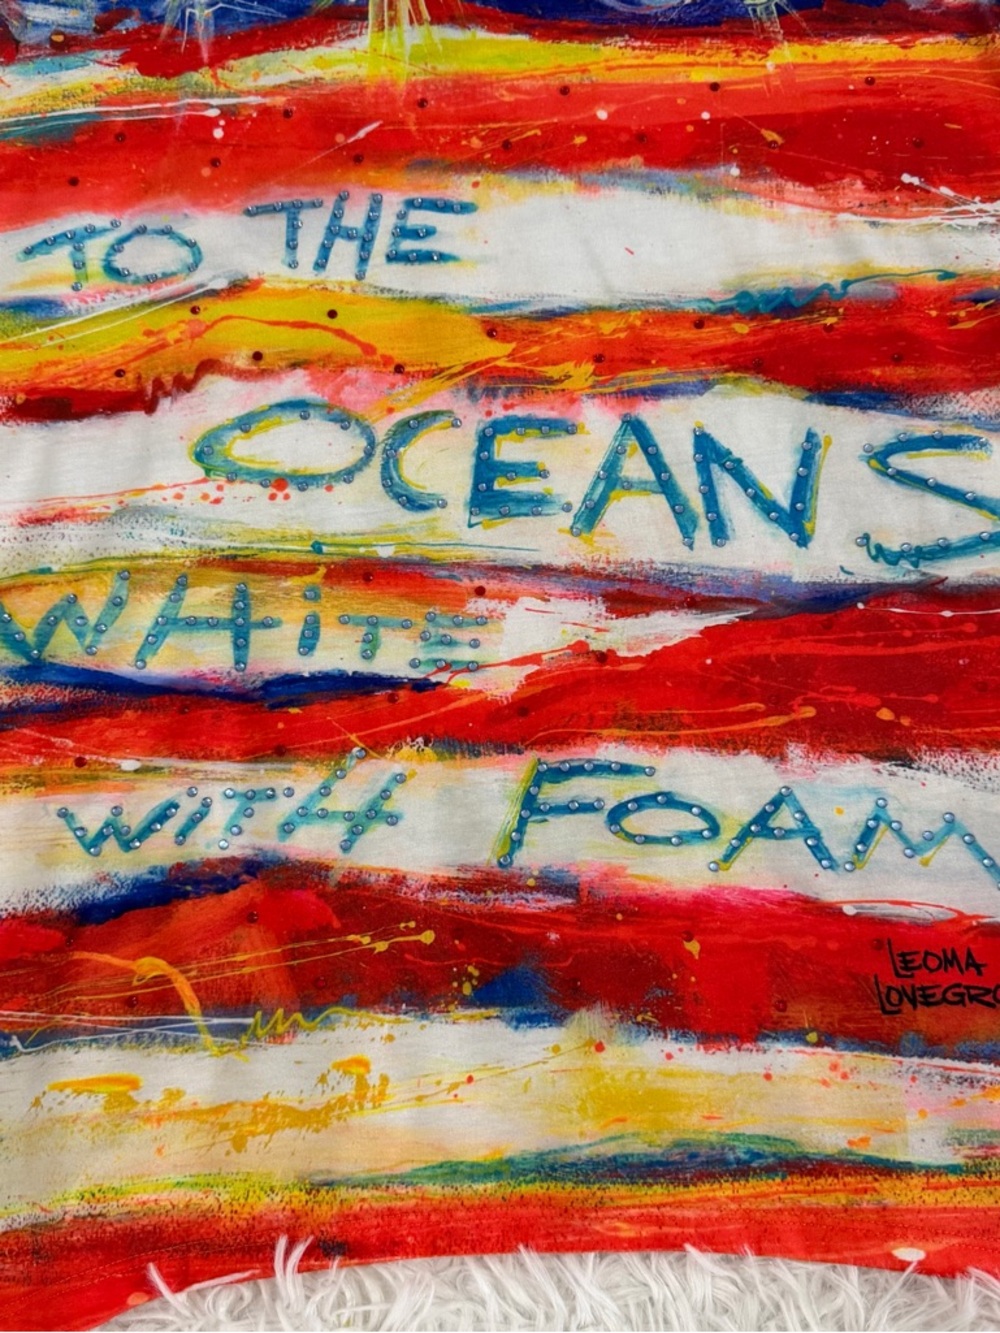 TO THE
OCEANS
WHiTE
WiTH FOAM
LEOMA
LOVEGRO